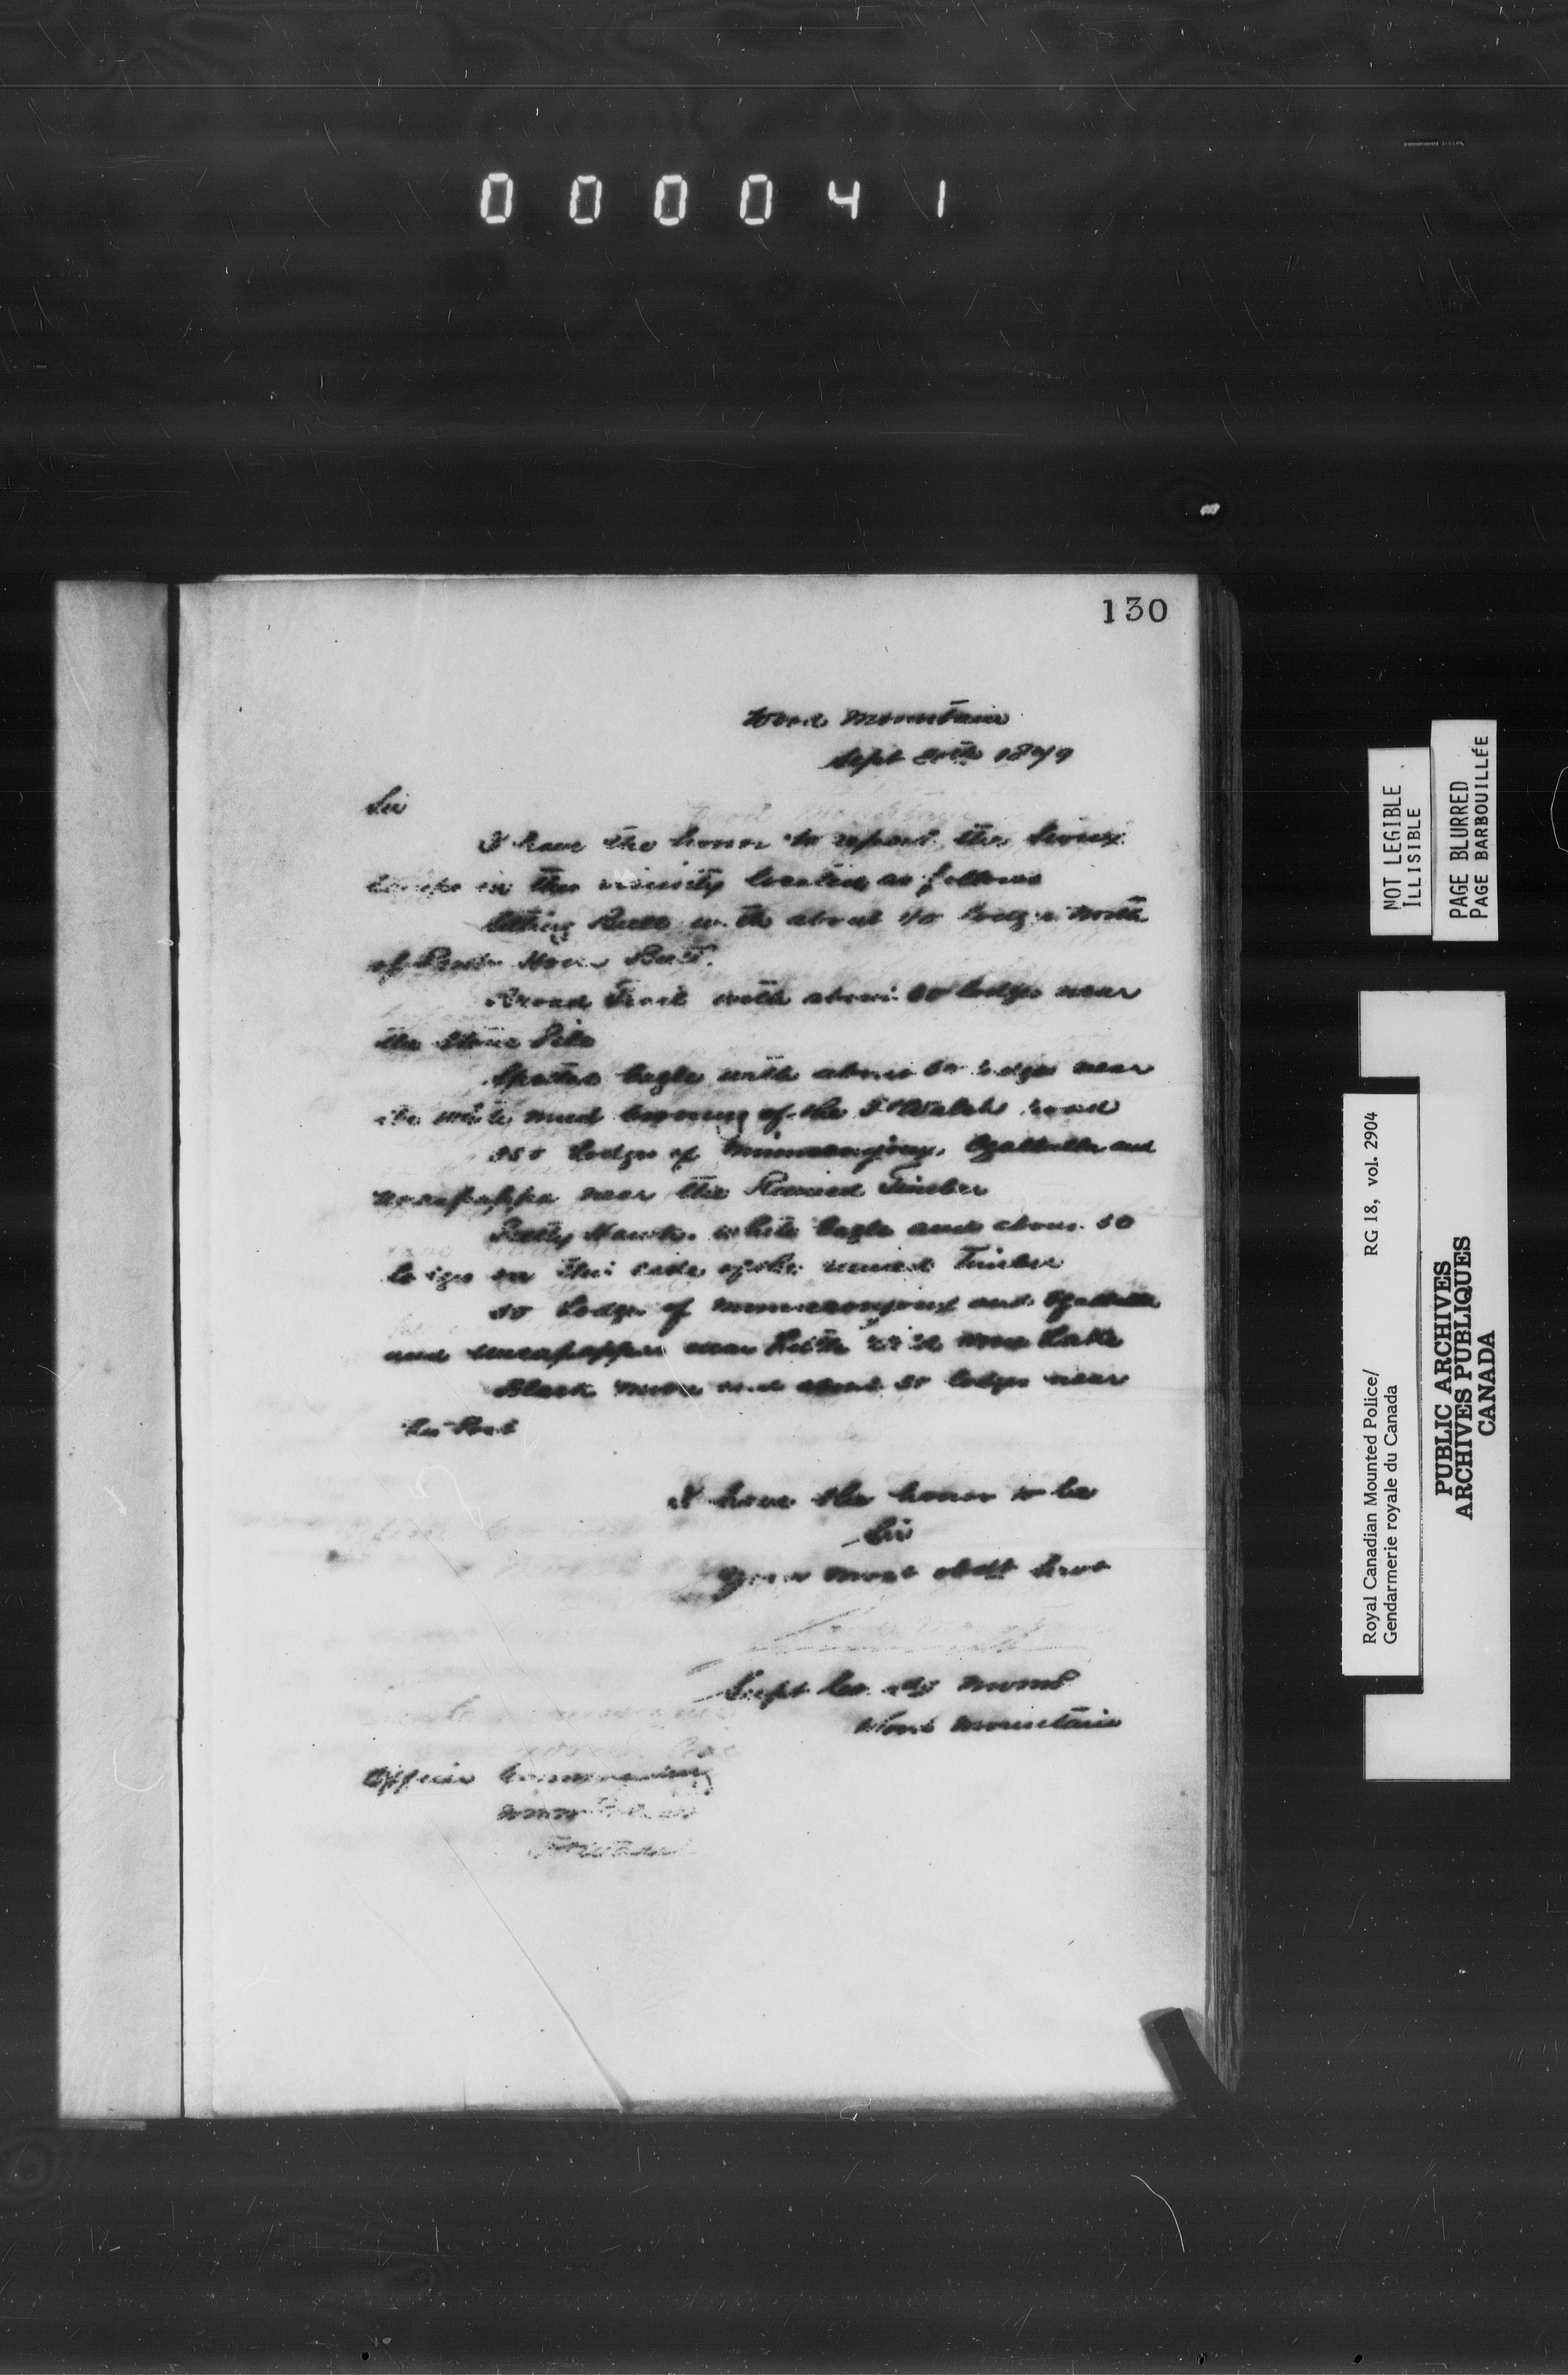 000041
130
Wood Mountain
Sept 20th 1879
Sir
I have the honor to report the Sioux
Camps in this vicinity located as follows
Sitting Bull with about 40 lodges north
of Horn Butt.
Broad Trail with about 60 lodges near
the Stone Pile
Spotted Eagle with about 60 lodges near
the white mud crossing of the Ft Walsh road
150 Lodges of Minneconjoux, Ogallalla and
Uncapappa near the Ruined Timber
Pretty Hawk, White Eagle and about 50
lodges on this side of the ruined Timber
30 Lodges of Minneconjoux and Ogallalla
and Uncapappa near Little Lake
Black and about 30 lodges near
the Post
I have the honor to be
Sir
Your most obdt Servt
Supt Com
Wood Mountain
Officer Commanding
NOT LEGIBLE
ILLISIBLE
PAGE BLURRED
PAGE BARBOUILLÉE
Royal Canadian Mounted Police/ RG 18, vol. 2904
Gendarmerie royale du Canada
PUBLIC ARCHIVES
ARCHIVES PUBLIQUES
CANADA